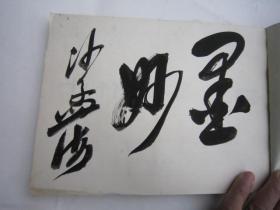 墨
妙
沙孟海